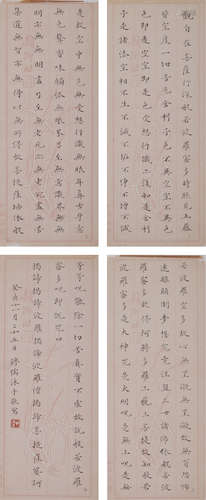 觀自在菩薩行深般若波羅蜜多時照見五蘊
皆空度一切苦厄舍利子色不異空空不異色
色即是空空即是色受想行識亦復如是舍利
子是諸法空相不生不滅不垢不淨不增不減
是故空中無色無受想行識無眼耳鼻舌身意
無色聲香味觸法無眼界乃至無意識界無無
明亦無無明盡乃至無老死亦無老死盡無苦
集滅道無智亦無得以無所得故菩提薩埵依般
若波羅蜜多故心無罣礙無罣礙故無有恐怖
遠離顛倒夢想究竟涅槃三世諸佛依般若波
羅蜜多故得阿耨多羅三藐三菩提故知般若
波羅蜜多是大神咒是大明咒是無上咒是無
等等咒能除一切苦真實不虛故說般若波羅
蜜多咒即說咒曰
揭諦揭諦波羅揭諦波羅僧揭諦菩提薩婆訶
十一月二十五日 溥儒沐手敬寫